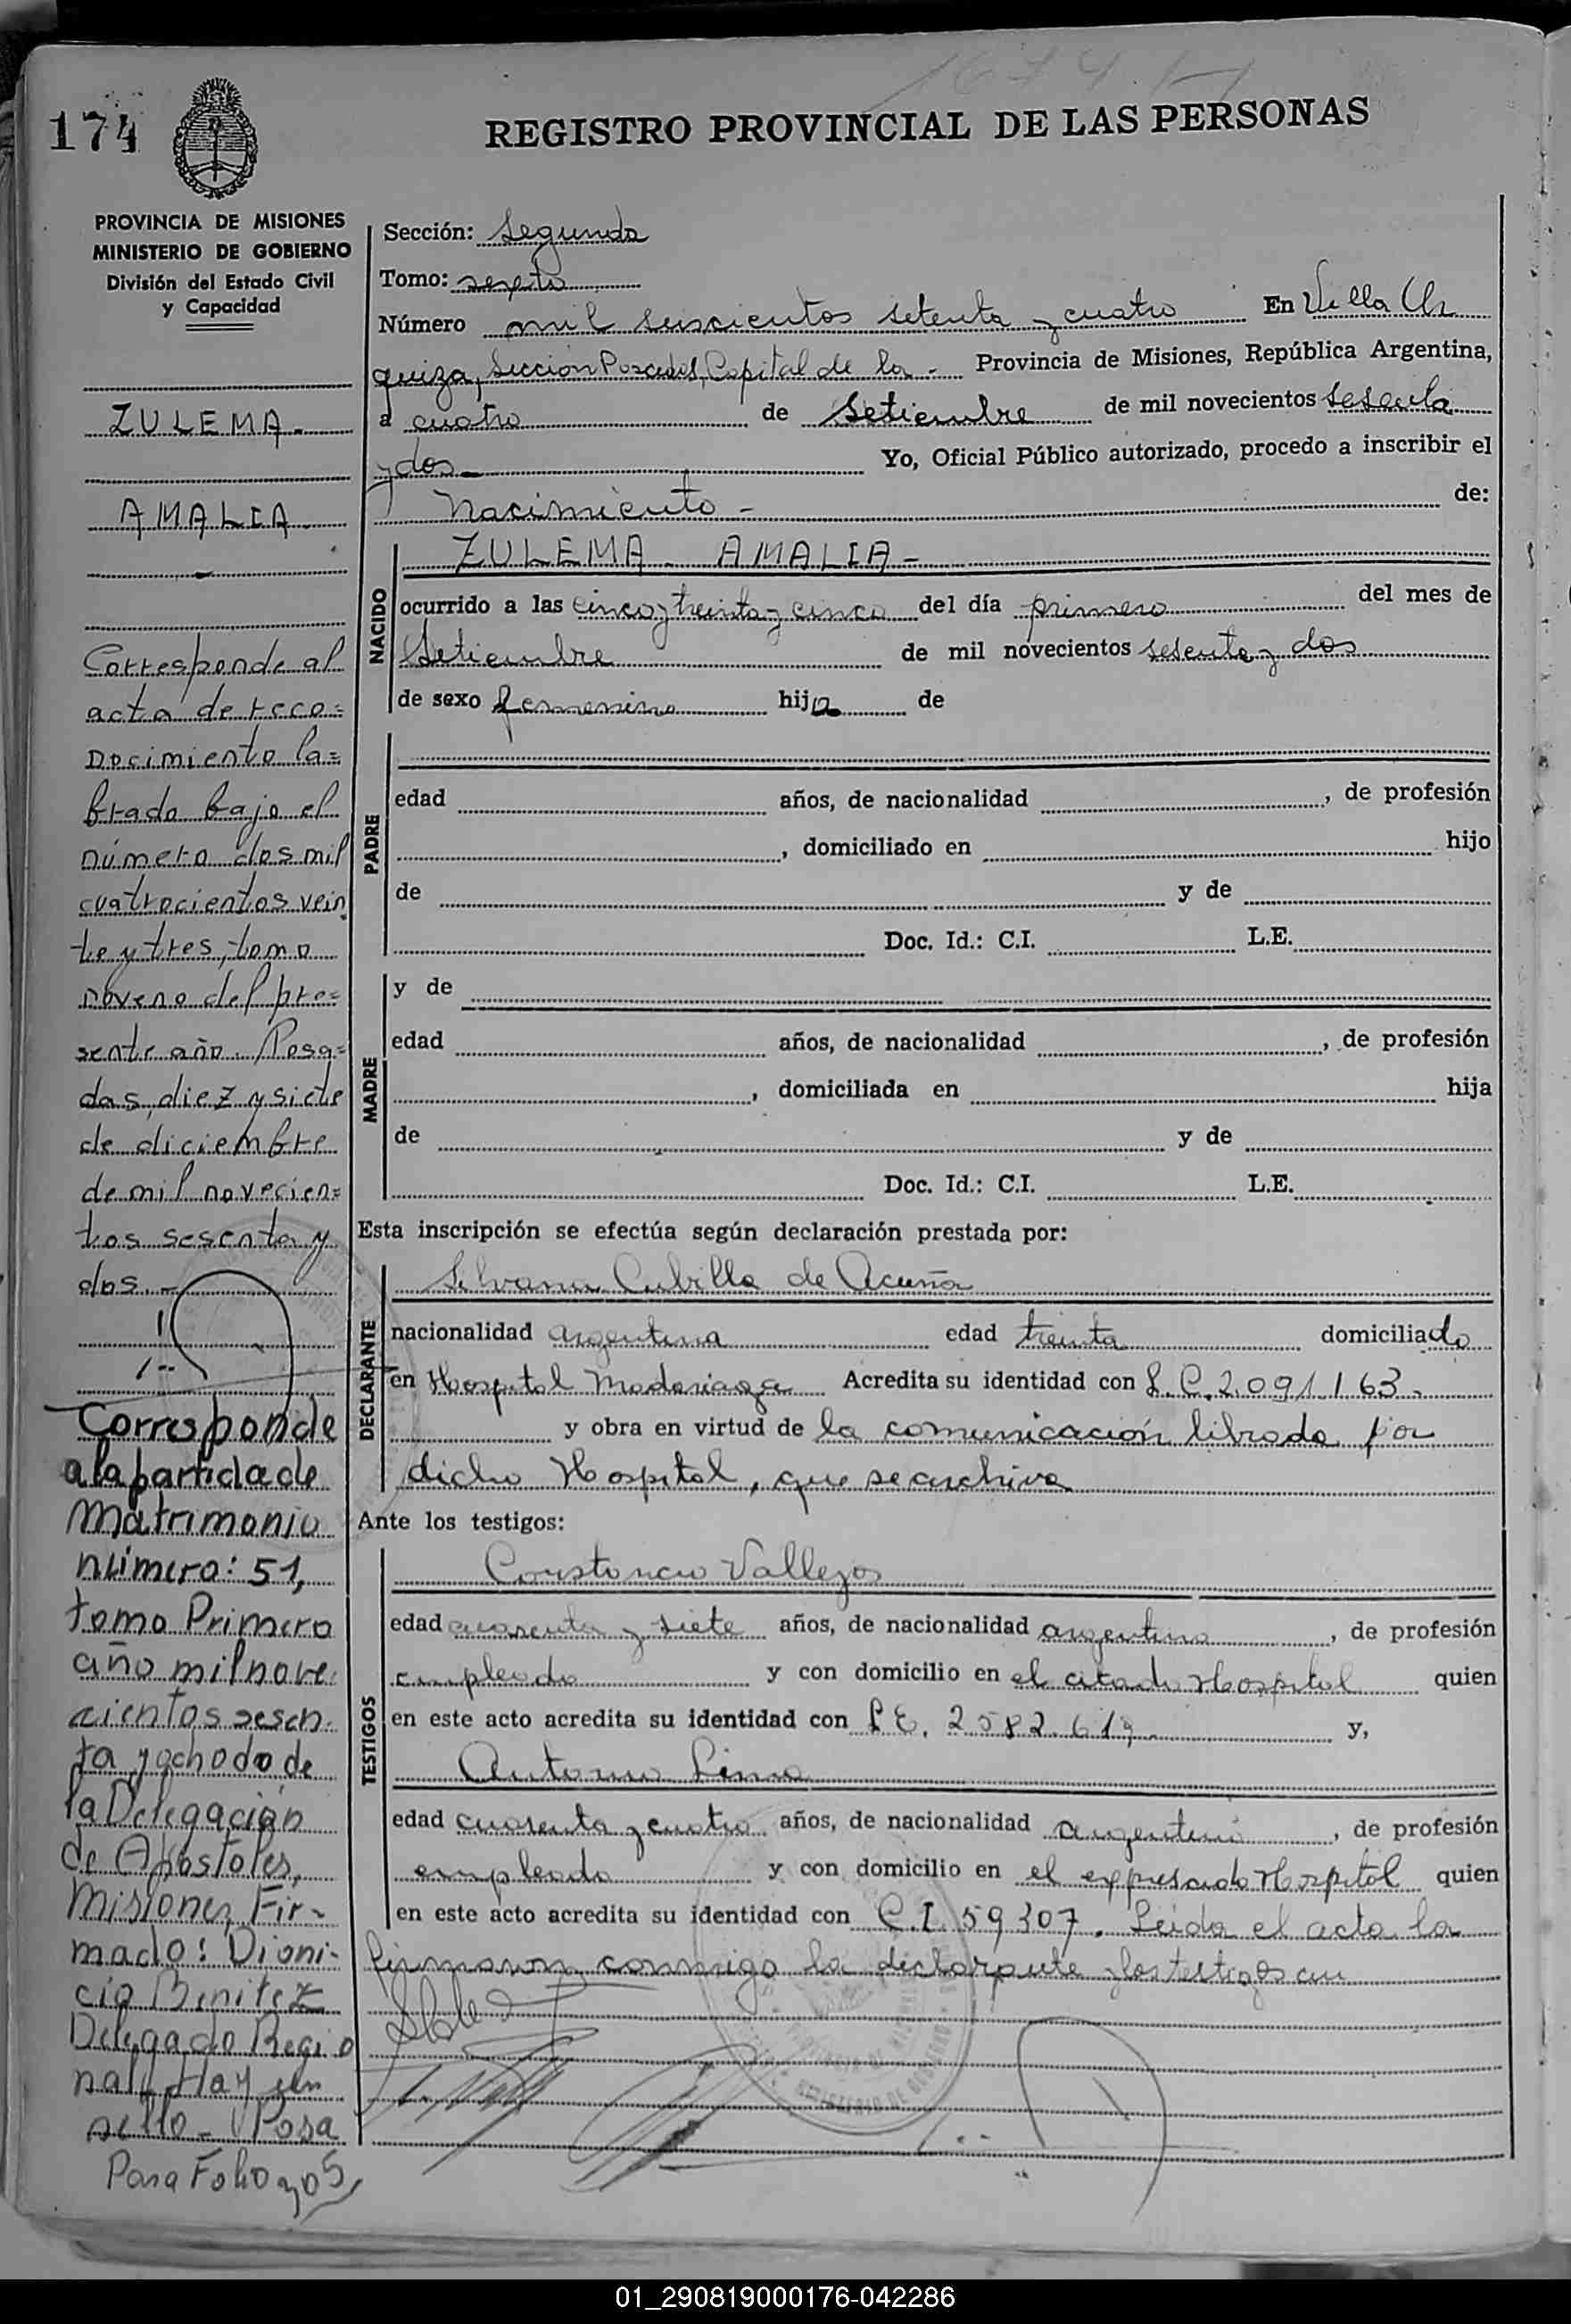 174
REGISTRO PROVINCIAL DE LAS PERSONAS
PROVINCIA DE MISIONES
MINISTERIO DE GOBIERNO
División del Estado Civil
y Capacidad
ZULEMA.
AMALIA.
Corresponde al
acta de reco=
nocimiento la=
brado bajo el
número dos mil
cuatrocientos vein
te y tres, tomo
noveno del pre=
sente año. Posa=
das, diez y siete
de diciembre
de mil novecien=
tos sesenta y
dos.-
Corresponde
a la partida de
Matrimonio
número: 51,
tomo Primero
año mil nove
cientos sesen-
ta y ocho do de
la Delegación
de Apóstoles,
Misiones, Fir-
mado: Dioni-
cio Benitez
Delegado Regio
nal, Hay un
sello - Posa
Pasa Folio 305
Sección: Segunda
Tomo: sexto
Número mil seiscientos setenta y cuatro En Villa Ur
quiza, Sección Posadas, Capital de la - Provincia de Misiones, República Argentina,
a cuatro de Setiembre de mil novecientos sesenta
y dos - Yo, Oficial Público autorizado, procedo a inscribir el
Nacimiento - de:
NACIDO
ZULEMA AMALIA -
ocurrido a las cinco y treinta y cinco del día primero del mes de
Setiembre de mil novecientos sesenta y dos
de sexo femenino hija de
PADRE
edad años, de nacionalidad , de profesión
, domiciliado en hijo
de y de
Doc. Id.: C.I. L.E.
MADRE
y de
edad años, de nacionalidad , de profesión
, domiciliada en hija
de y de
Doc. Id.: C.I. L.E.
Esta inscripción se efectúa según declaración prestada por:
DECLARANTE
Silvana Cubilla de Acuña
nacionalidad argentina edad treinta domiciliado
en Hospital Madariaga Acredita su identidad con L.C. 2.091.163.
y obra en virtud de la comunicación librada por
dicho Hospital, que se archiva
Ante los testigos:
TESTIGOS
Constancio Vallejos
edad cuarenta y siete años, de nacionalidad argentino , de profesión
empleado y con domicilio en el citado Hospital quien
en este acto acredita su identidad con L.E. 2582.619 y,
Antonio Lima
edad cuarenta y cuatro años, de nacionalidad argentino , de profesión
empleado y con domicilio en el expresado Hospital quien
en este acto acredita su identidad con C.I. 59307. Leida el acta la
firmaron conmigo la declarante y los testigos
01_290819000176-042286